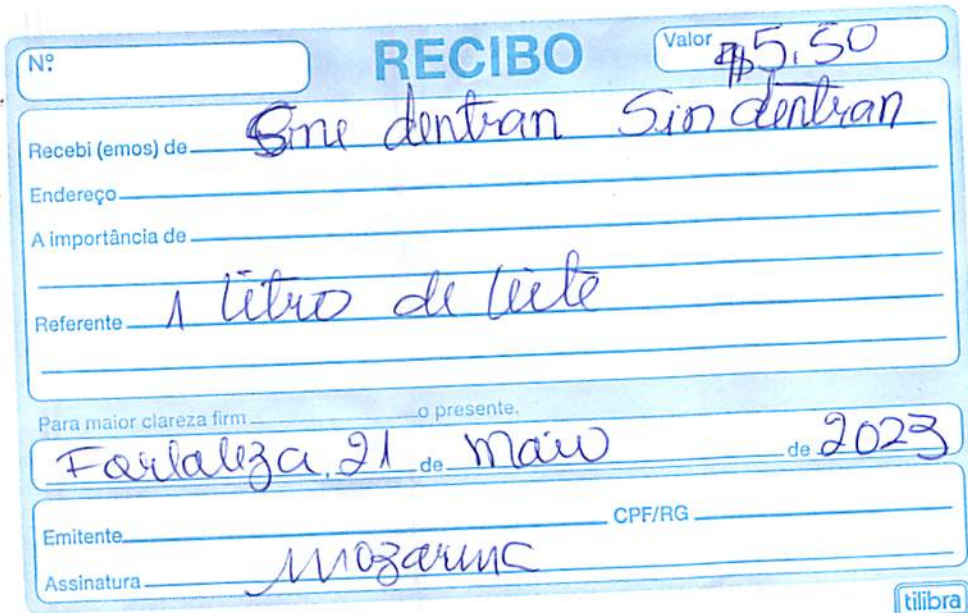 Nº RECIBO Valor $5,50
Recebi (emos) de dentran Sindentran
Endereço
A importância de
Referente 1 litro de leite
Para maior clareza firm o presente.
Fortaleza, 21 de Maio de 2023
Emitente CPF/RG
Assinatura Mozarina
tilibra